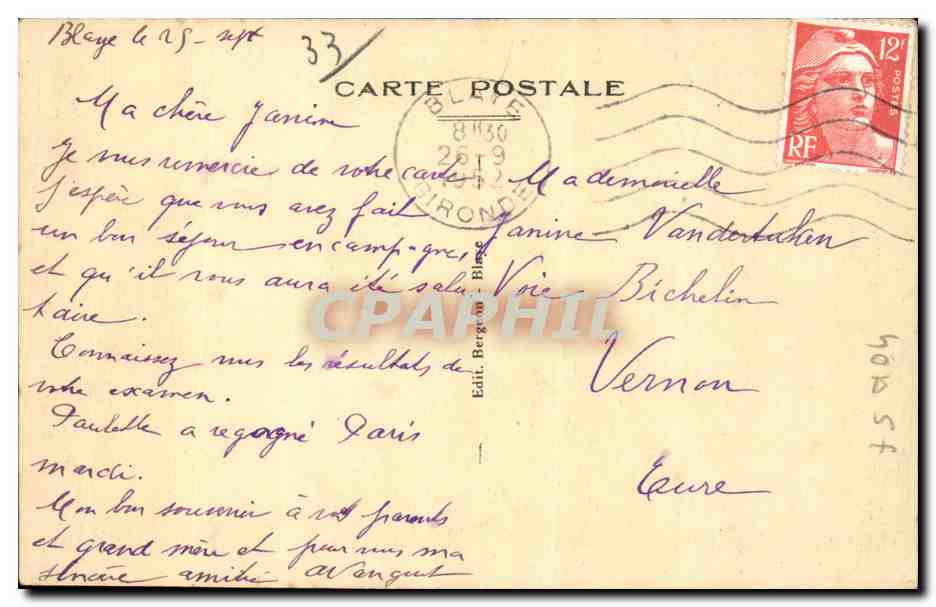 Blaye le 25 - sept
33/
CARTE POSTALE
Ma chère Janine
Je vous remercie de votre carte
j'espère que vous avez fait
un bon séjour en campagne,
et qu'il vous aura été salu
taire.
Connaissez vous les résultats de
votre examen.
Paulette a regagné Paris
mardi.
Mon bon souvenir à vos parents
et grand mère et pour vous ma
sincère amitié
BLAYE
8H30
26-9
1952
GIRONDE
12F
POSTES
RF
Mademoiselle
Janine
Voie Bichelin
Vernon
Eure
Edit. Bergeon - Blaye
CPAPHIL